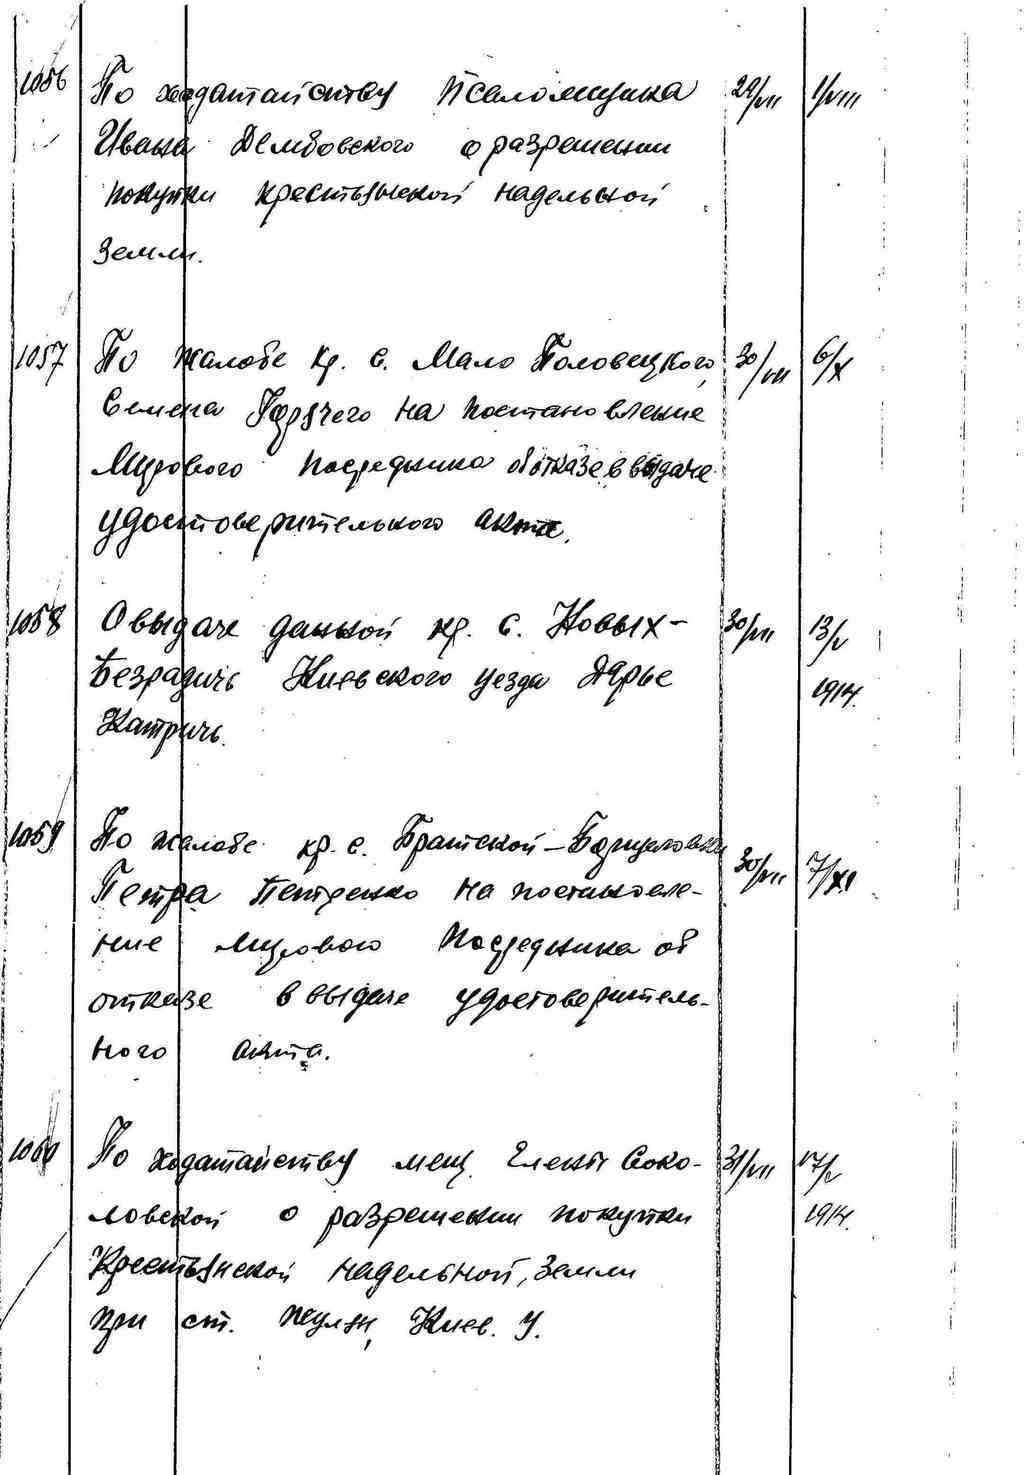 1056 По ходатайству Псаломщика 29/VII 1/VIII
Ивана Дембовского о разрешении
покупки крестьянской надельной
земли.
1057 По жалобе кр. с. Мало Половецкого, 30/VII 6/X
Семена Горячего на постановление
Мирового Посредника об отказе в выдаче
удостоверительного акта.
1058 О выдаче данной кр. с. Новых- 30/VII 13/V
Безрадичь Киевского уезда Дарье 1914.
Катричь.
1059 По жалобе кр. с. Братской-Борщаговки 30/VII 7/XI
Петра Петренко на постановле-
ние Мирового Посредника об
отказе в выдаче удостоверитель-
ного акта.
1060 По ходатайству мещ. Елены Соко- 31/VII 17/V
ловской о разрешении покупки 1914.
Крестьянской надельной, земли
при ст. Жуляны, Киев. У.